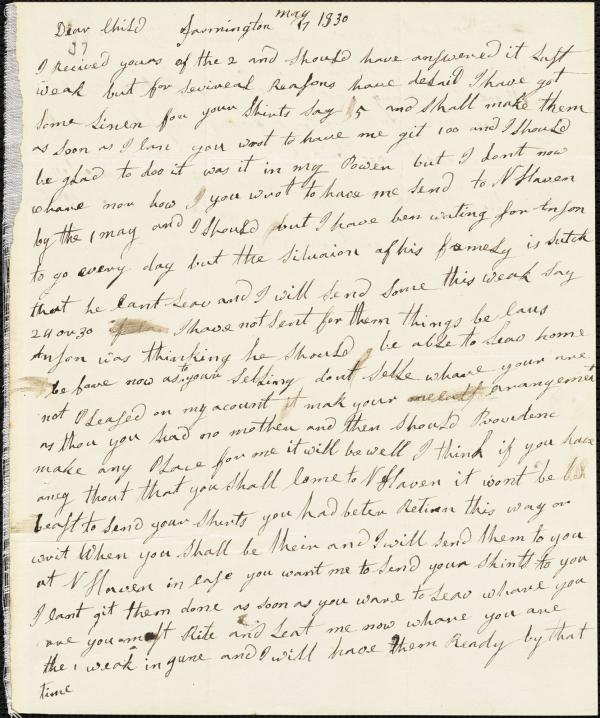 Dear Child Farmington May 17 1830
37
I recived yours of the 2 and Should have answered it Last
weak but for Sevireal Reasons have delaid I have got
Some Linen for your Shirts Say 5 and Shall make them
as Soon as I Can you wrot to have me git 100 and I Should
be glad to doo it was it in my Power but I dont now
whare nor how I you wrot to have me Send to N Haven
by the 1 may and I Should but I have ben wating for Anson
to go every day but the Situaion of his famely is Sutch
that he Cant Leav and I will Send Some this weak Say
24 or 30 I have not Sent for them things be Caus
Anson was thinking he Should be able to Leav home
be fore now as to your Setling dont Setle whare your are
not Pleased on my acount it mak your arrangement
as thou you had no mother and then Should Providenc
make any Place for me it will be well I think if you have
aney thout that you Shall Come to N Haven it wont be
beast to Send your Shirts you had beter Return this way or
writ When you Shall be their and I will Send them to you
at N Haven in Case you want me to Send your Shirts to you
I Cant git them done as Soon as you ware to Leav whare you
are you must Rite and Leat me now whare you are
the 1 weak in june and I will have them Ready by that
time